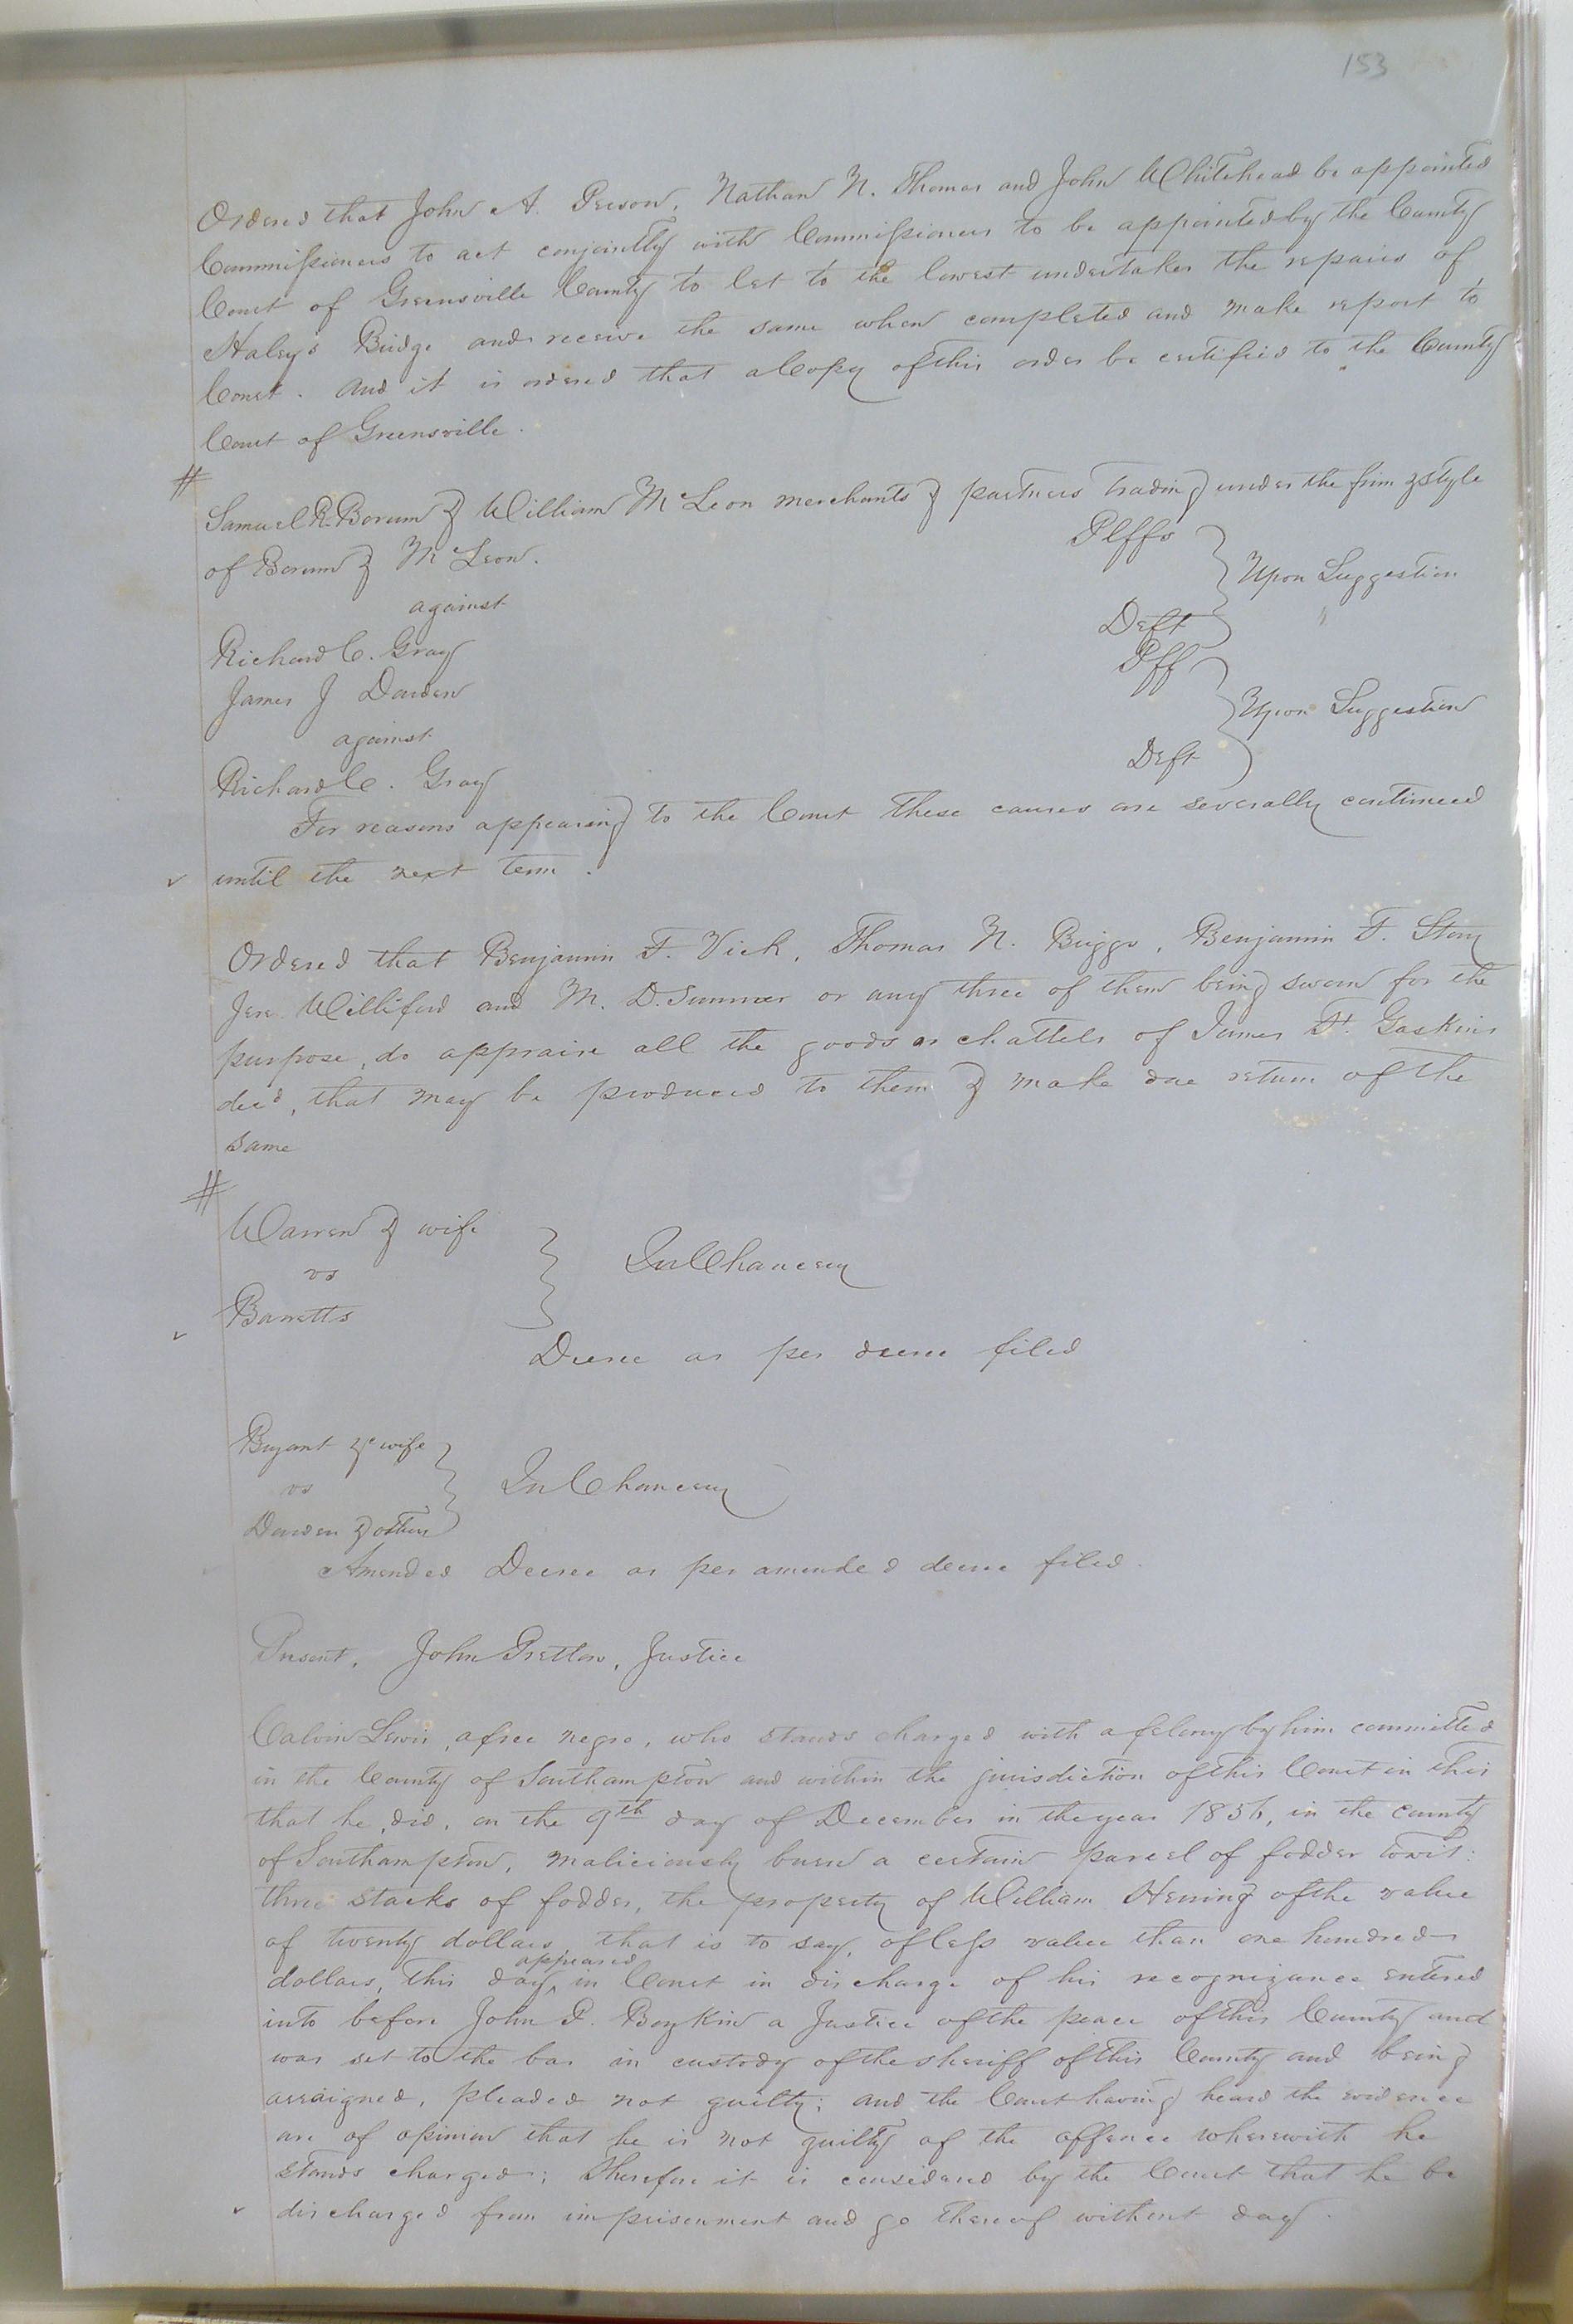 153
Ordered that John A. Person, Nathan N. Thomas and John Whitehead be appointed
Commissioners to act conjointly with Commissioners to be appointed by the County
Court of Greensville County to let to the lowest undertaker the repairs of
Haley's Bridge and receive the same when completed and make report to
Court. And it is ordered that a Copy of this order be certified to the County
Court of Greensville.
#
Samuel R. Borum & William McLeon merchants & partners trading under the firm & style
of Borum & McLeon. Plffs
against Upon Suggestion
Richard C. Gray Deft
James J Darden Plff
against Upon Suggestion
Richard C. Gray Deft
For reasons appearing to the Court these causes are severally continued
until the next term.
Ordered that Benjamin F. Vick, Thomas N. Briggs, Benjamin F. Story
Jere Williford and M. D. Sumner or any three of them being sworn for the
purpose, do appraise all the goods or chattels of James F. Gaskins
decd, that may be produced to them & make due return of the
same
#
Warren & wife
vs In Chancery
Barretts
Decree as per decree filed
Bryant & wife
vs In Chancery
Darden & others
Amended Decree as per amended decree filed.
Present, John Pretlow, Justice
Calvin Lewis, a free negro, who stands charged with a felony by him committed
in the County of Southampton and within the jurisdiction of this Court in this
that he, did, on the 9th day of December in the year 1856, in the county
of Southampton, maliciously burn a certain parcel of fodder towit:
three stacks of fodder, the property of William Herring of the value
of twenty dollars, that is to say, of less value than one hundred
dollars, this day appeared in Court in discharge of his recognizance entered
into before John P. Boykin a Justice of the peace of this County and
was set to the bar in custody of the sheriff of this County and being
arraigned, pleaded not guilty; and the Court having heard the evidence
are of opinion that he is not guilty of the offence wherewith he
stands charged; therefore it is considered by the Court that he be
discharged from imprisonment and go thereof without day.